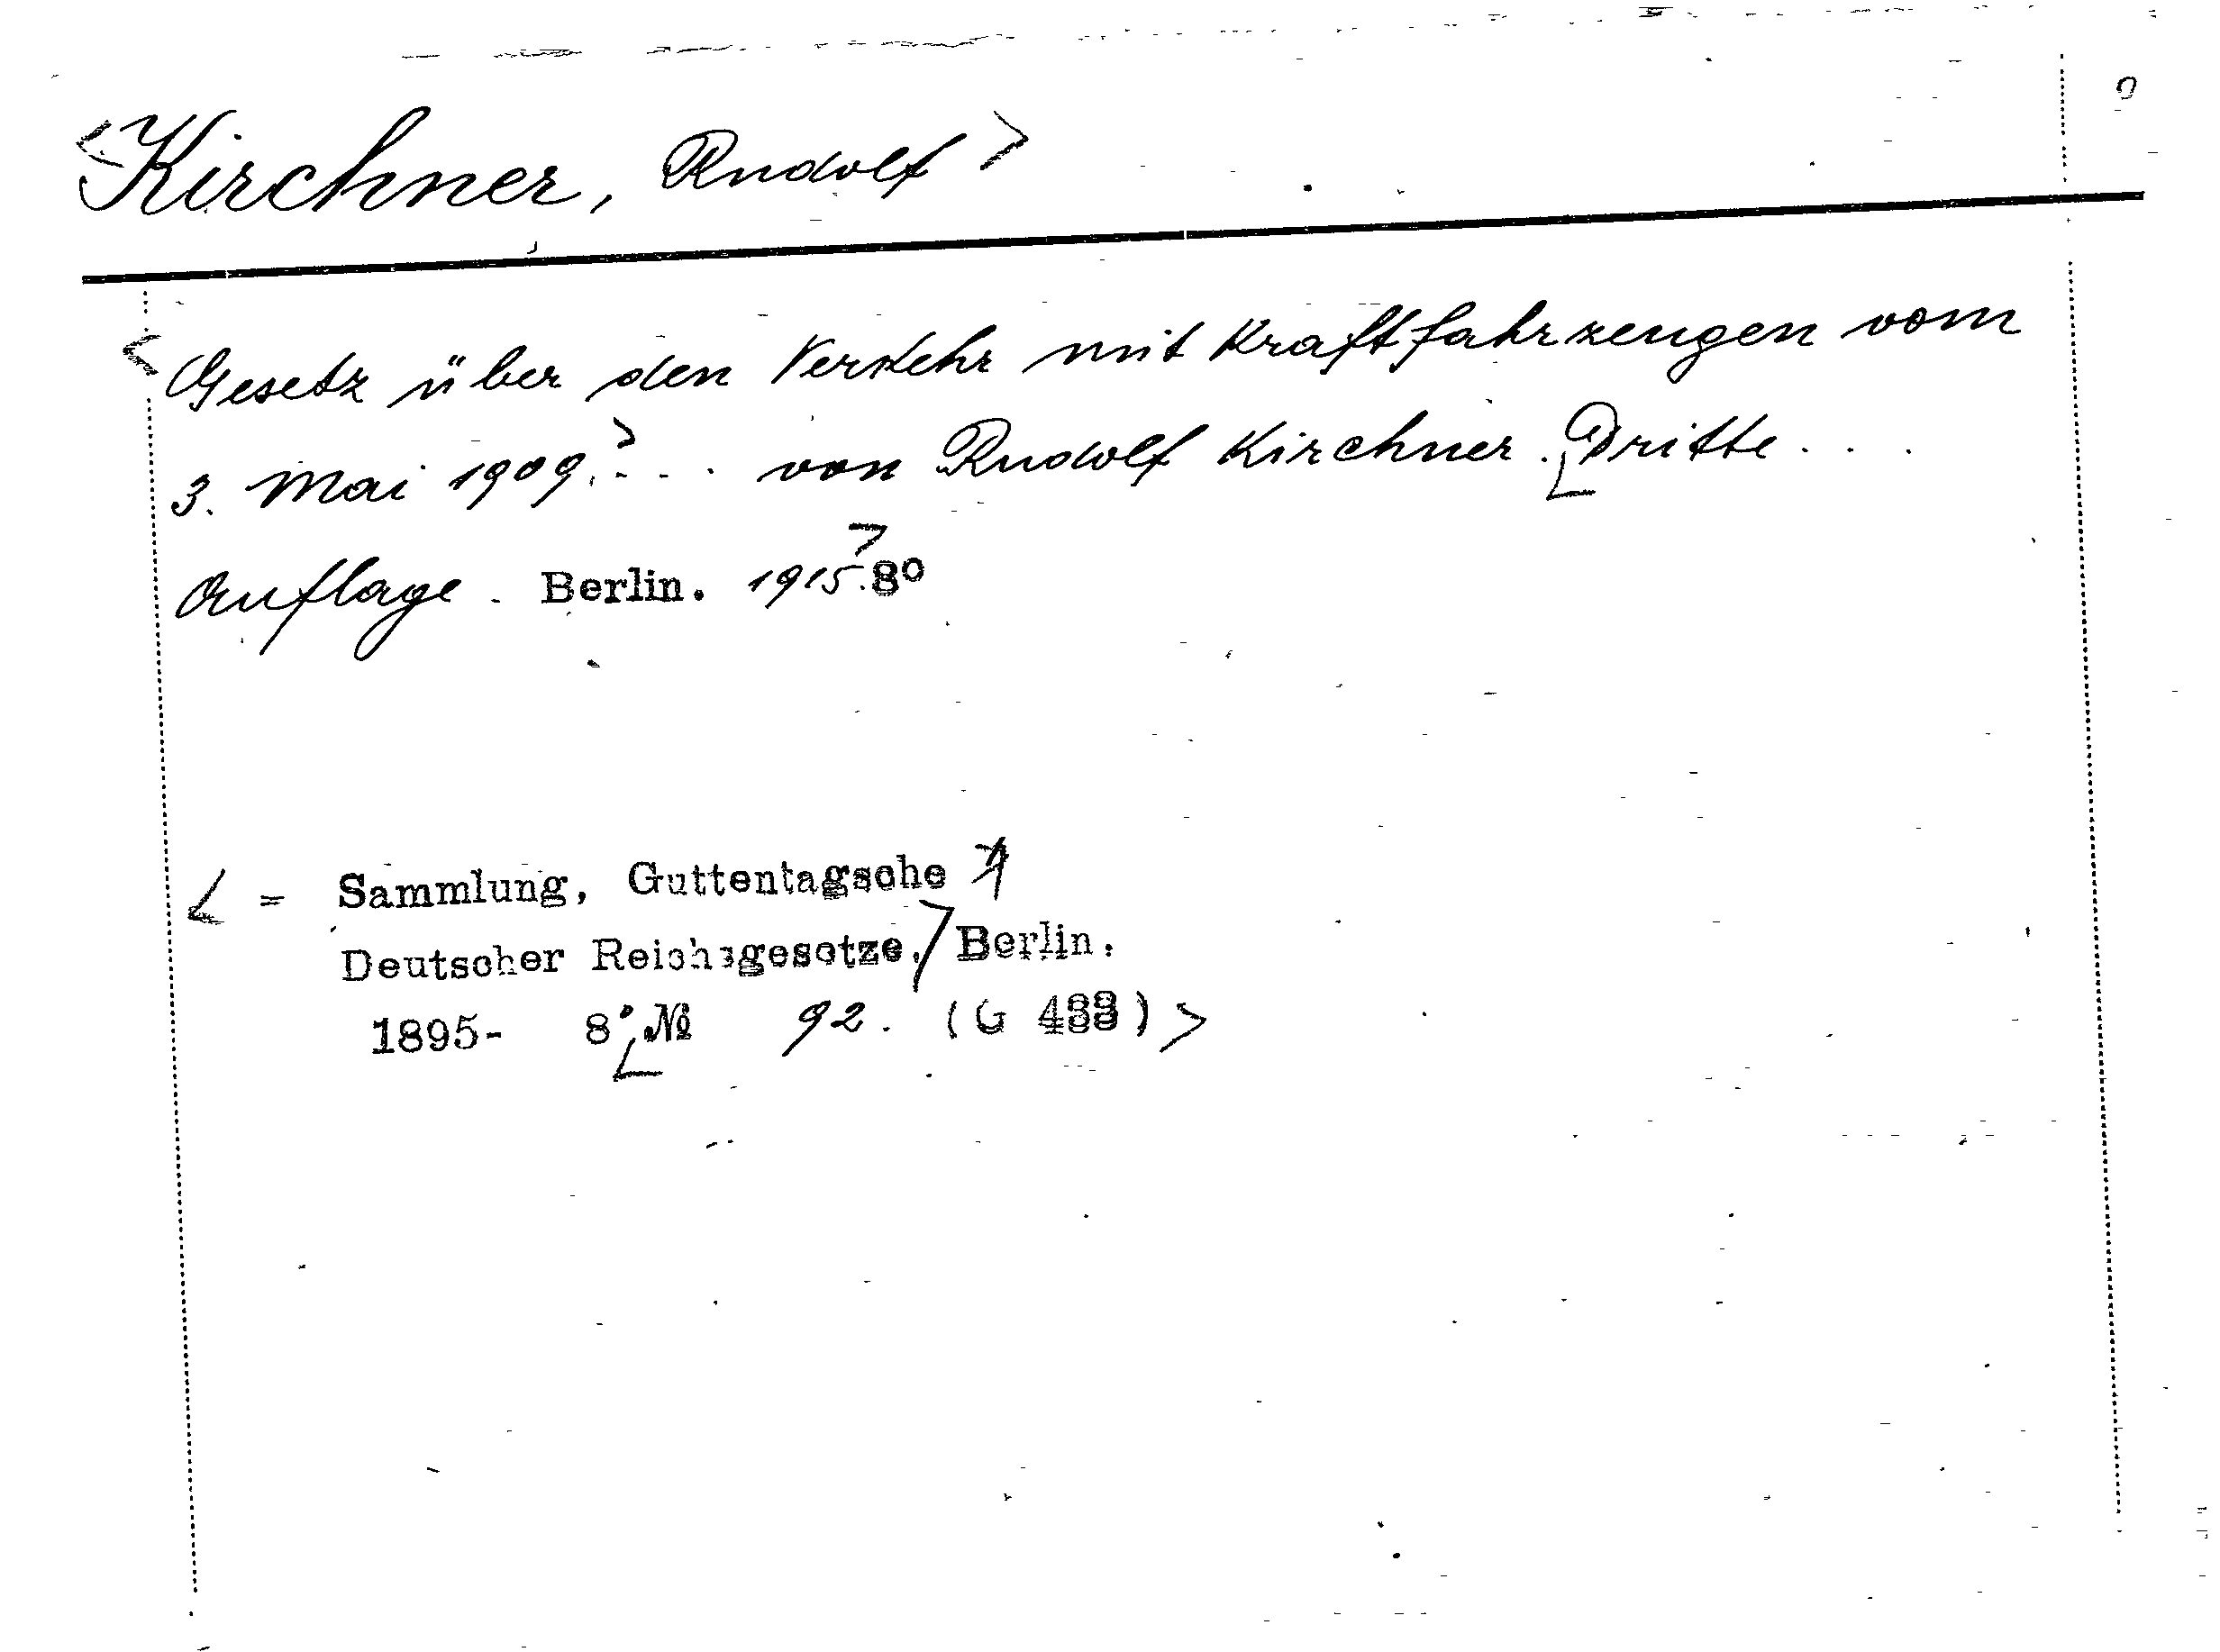 <Kirchner, Rudolf>
<Gesetz über den Verkehr mit Kraftfahrzeugen vom
3. Mai 1909.> . . . von Rudolf Kirchner. Dritte . . .
Auflage. Berlin. 1915.> 8º
< = Sammlung, Guttentagsche
Deutscher Reichsgesetze.> Berlin.
1895- 8º. № 92. (G 488)>